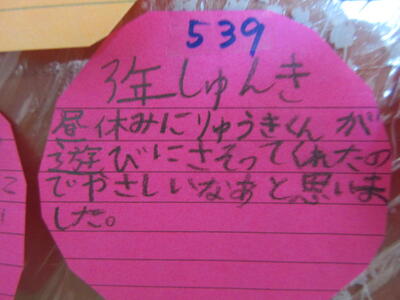 539
3年しゅんき
昼休みにりゅうきくんが
遊びにさそってくれたの
でやさしいなあと思いま
した。